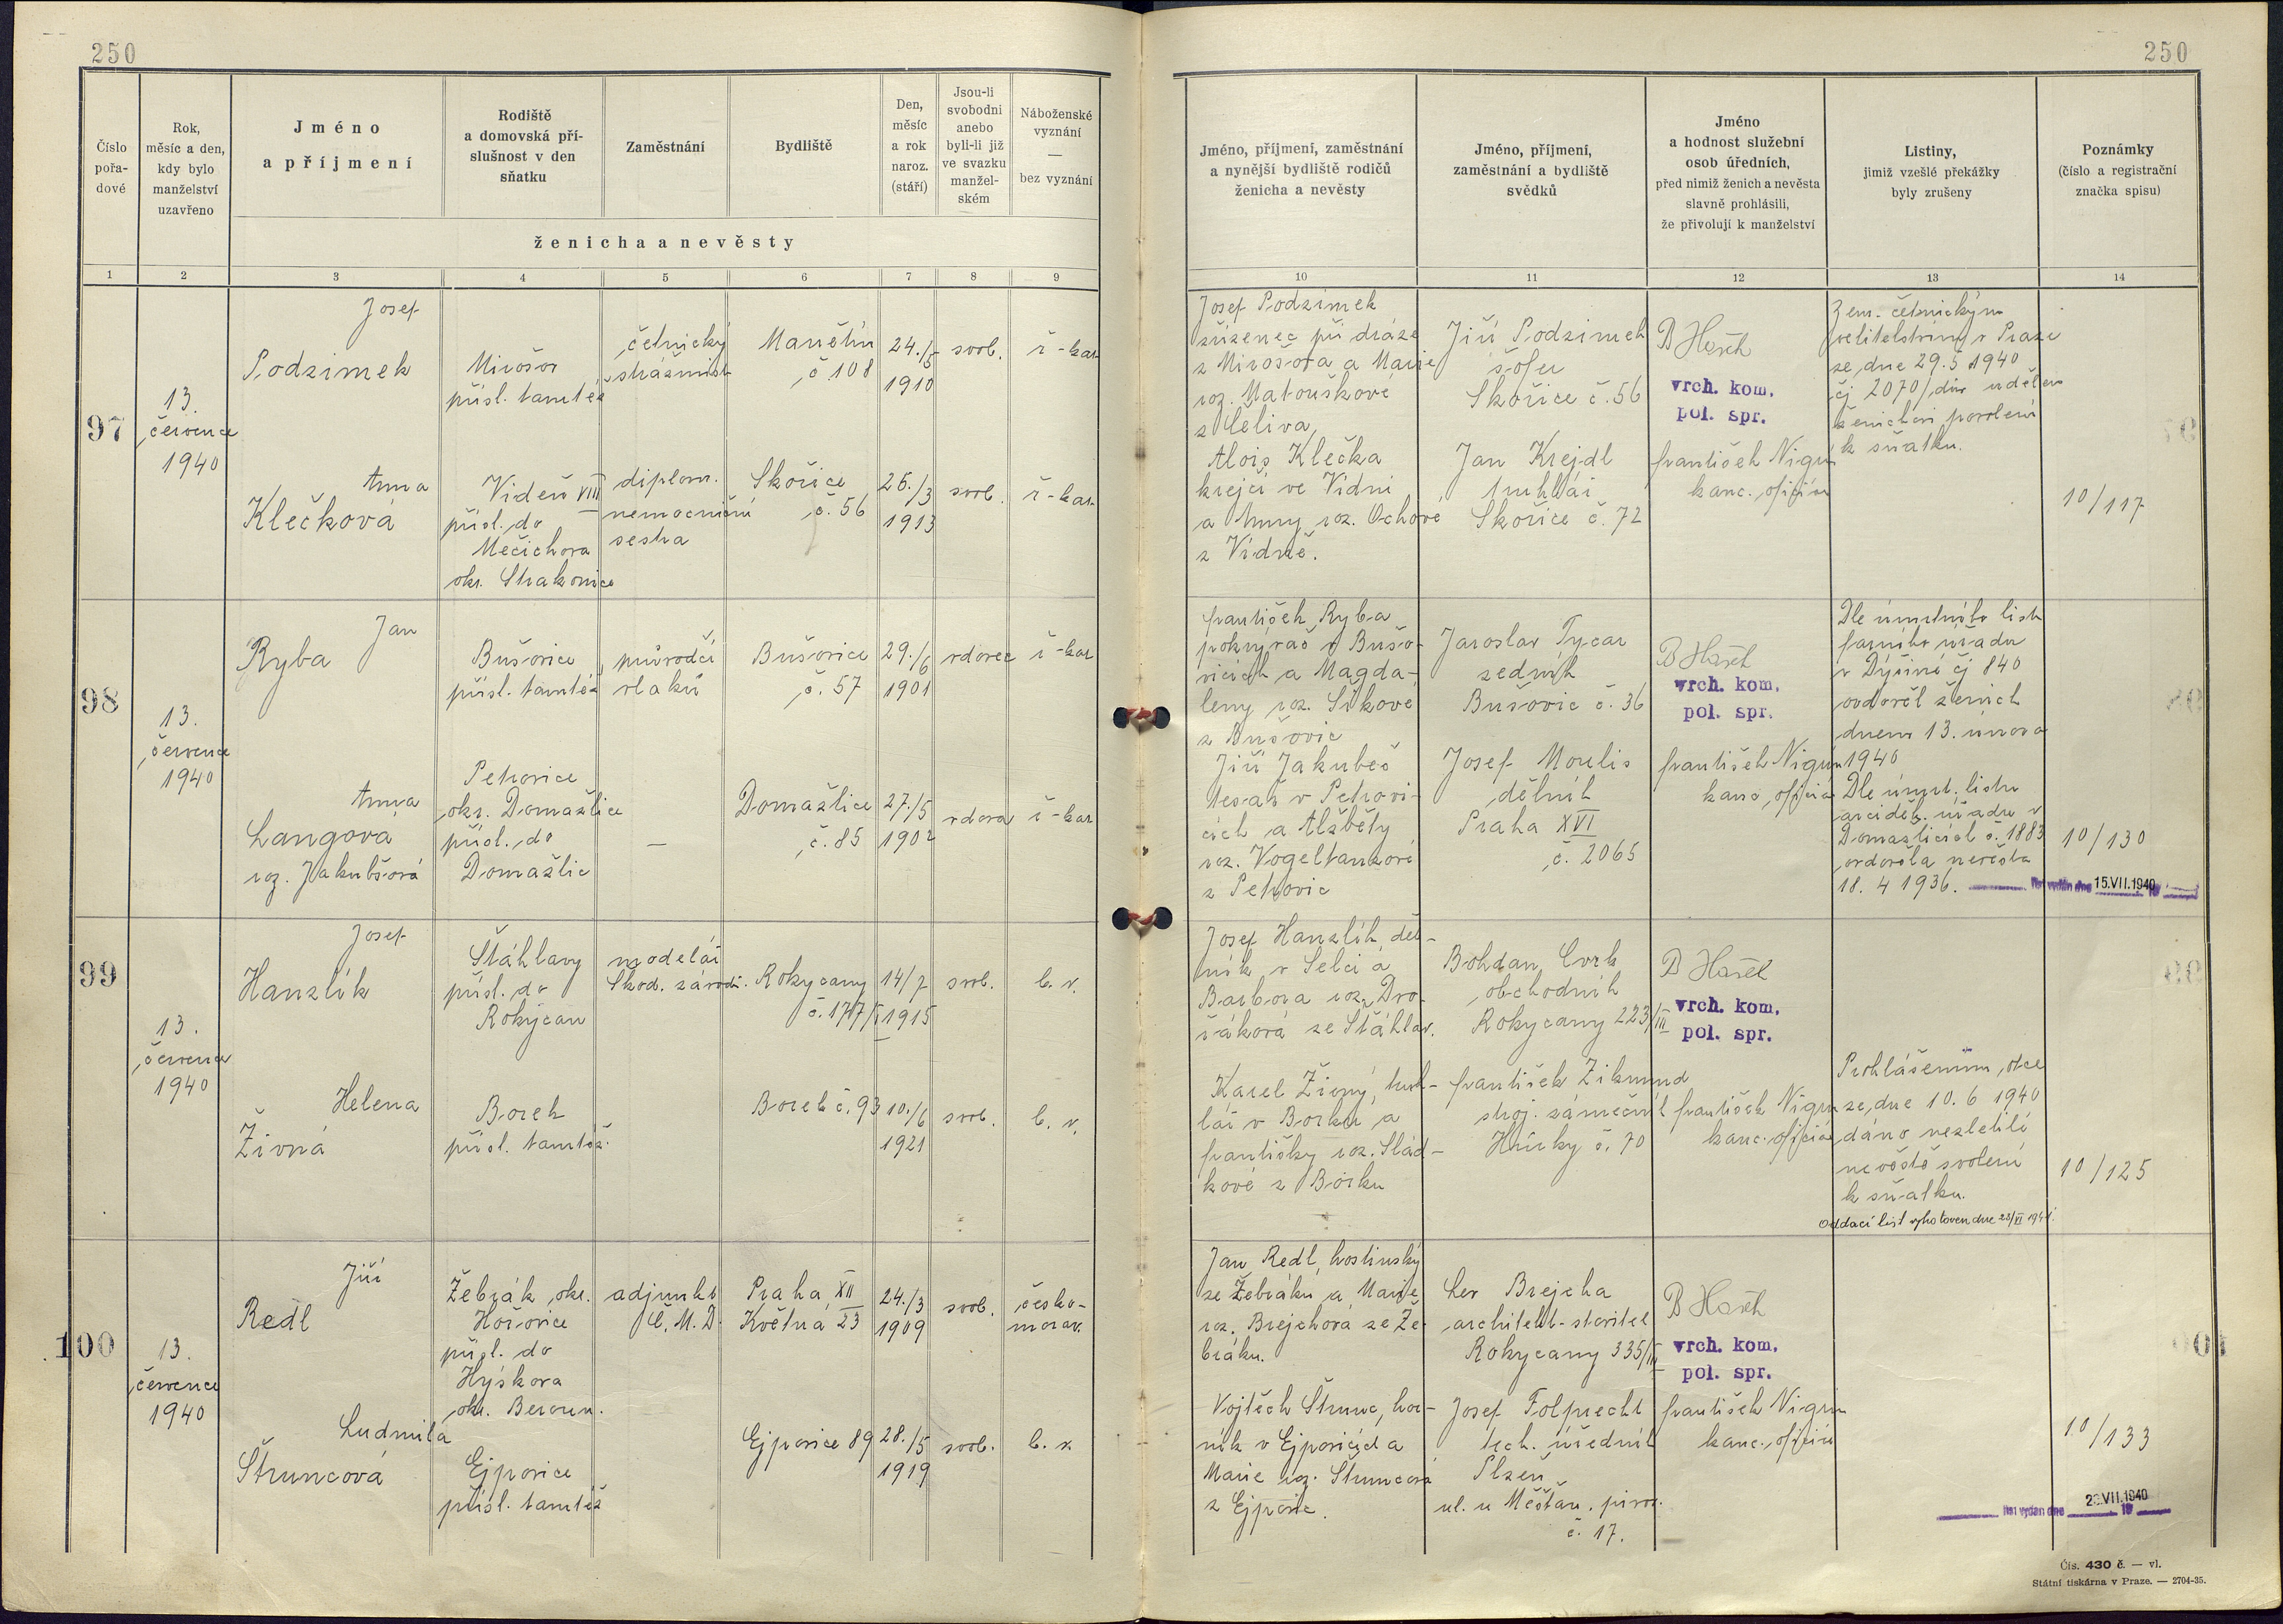 250
250
Číslo
pořa-
dové
Rok,
měsíc a den,
kdy bylo
manželství
uzavřeno
Jméno
a příjmení
Rodiště
a domovská pří-
slušnost v den
sňatku
Zaměstnání
Bydliště
Den,
měsíc
a rok
naroz.
(stáří)
Jsou-li
svobodni
anebo
byli-li již
ve svazku
manžel-
ském
Náboženské
vyznání
—
bez vyznání
ženicha a nevěsty
Jméno, příjmení, zaměstnání
a nynější bydliště rodičů
ženicha a nevěsty
Jméno, příjmení,
zaměstnání a bydliště
svědků
Jméno
a hodnost služební
osob úředních,
před nimiž ženich a nevěsta
slavně prohlásili,
že přivolují k manželství
Listiny,
jimiž vzešlé překážky
byly zrušeny
Poznámky
(číslo a registrační
značka spisu)
1 2 3 4 5 6 7 8 9
10 11 12 13 14
97
13.
července
1940
Josef
Podzimek
Mirošov
přísl. tamtéž
četnický
strážmistr
Manětín
č. 108
24./5
1910
svob.
ř-kat.
Anna
Klečková
Vídeň VIII
přísl. do
Mečichova
okr. Strakonice
diplom.
nemocniční
sestra
Skořice
č. 56
26./3
1913
svob.
ř-kat.
Josef Podzimek
zřízenec při dráze
z Mirošova a Marie
roz. Matouškové
z Čeliva
Alois Klečka
krejčí ve Vídni
a Anny roz. Ochové
z Vídně.
Jiří Podzimek
šofer
Skořice č. 56
Jan Krejdl
truhlář
Skořice č. 72
B Hašek
vrch. kom.
pol. spr.
František Nigrin
kanc. oficiál
Zem. četnickým
velitelstvím v Praze
ze dne 29.5 1940
čj 2070/dův uděleno
ženichovi povolení
k sňatku.
10/117
98
13.
července
1940
Jan
Ryba
Bušovice
přísl. tamtéž
průvodčí
vlaků
Bušovice
č. 57
29./6
1901
vdovec
ř-kat
Anna
Langová
roz. Jakubšová
Petrovice
okr. Domažlice
přísl. do
Domažlic
—
Domažlice
č. 85
27./5
1902
vdova
ř-kat
František Ryba
pokrývač v Bušo-
vicích a Magda-
leny roz. Síkové
z Bušovic
Jiří Jakubeš
tesař v Petrovi-
cích a Alžběty
roz. Vogeltanzové
z Petrovic
Jaroslav Tycar
sedník
Bušovic č. 36
Josef Moulis
dělník
Praha XVI
č. 2065
B Hašek
vrch. kom.
pol. spr.
František Nigrin
kanc. oficiál
Dle úmrtního listu
farního úřadu
v Dýšině čj 840
ovdověl ženich
dnem 13. února
1940
Dle úmrt. listu
arciděk. úřadu v
Domažlicích č. 1883
ovdověla nevěsta
18. 4 1936.
list vydán dne 15.VII.1940
10/130
99
13.
července
1940
Josef
Hanzlík
Štáhlavy
přísl. do
Rokycan
modelář
Škod. závodů
Rokycany
č. 177/I
14/7
1915
svob.
b. v.
Helena
Živná
Borek
přísl. tamtéž.
Borek č. 93
10./6
1921
svob.
b. v.
Josef Hanzlík, děl-
ník v Selci a
Barbora roz. Dvo-
řáková ze Štáhlav.
Karel Živný, truh-
lář v Borku a
Františky roz. Slád-
kové z Borku
Bohdan Cvrk
obchodník
Rokycany 223/III
František Zikmund
stroj. zámečník
Hůrky č. 70
B Hašek
vrch. kom.
pol. spr.
František Nigrin
kanc. oficiál
Prohlášením otce
ze dne 10. 6 1940
dáno nezletilé
nevěstě svolení
k sňatku.
Oddací list vyhotoven dne 28/VI 1941.
10/125
100
13.
července
1940
Jiří
Redl
Žebrák, okr.
Hořovice
přísl. do
Hýskova
okr. Beroun.
adjunkt
Č. M. D.
Praha XII
Květná 23
24./3
1909
svob.
česko-
morav.
Ludmila
Štruncová
Ejpovice
přísl. tamtéž
Ejpovice 89
28./5
1919
svob.
b. v.
Jan Redl, hostinský
ze Žebráku a Marie
roz. Brejchová ze Že-
bráku.
Vojtěch Štrunc, hor-
ník v Ejpovicích a
Marie roz. Štruncová
z Ejpovic.
Lev Brejcha
architekt-stavitel
Rokycany 335/III
Josef Folprecht
tech. úředník
Plzeň
ul. u Měšťan. pivov.
č. 17.
B Hašek
vrch. kom.
pol. spr.
František Nigrin
kanc. oficiál
10/133
list vydán dne VII.1940 19
Čís. 430 č. — vl.
Státní tiskárna v Praze. — 2704-35.